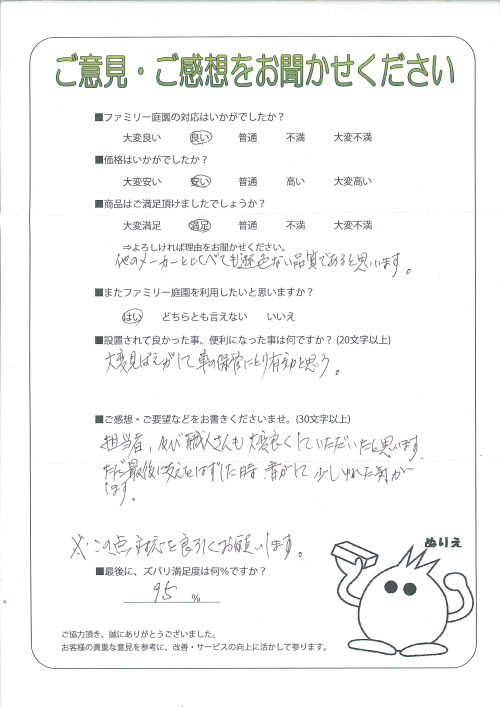 ご意見・ご感想をお聞かせください
■ファミリー庭園の対応はいかがでしたか？
大変良い 良い 普通 不満 大変不満
■価格はいかがでしたか？
大変安い 安い 普通 高い 大変高い
■商品はご満足頂けましたでしょうか？
大変満足 満足 普通 不満 大変不満
⇒よろしければ理由をお聞かせください。
他のメーカーと比べても遜色ない品質であると思います。
■またファミリー庭園を利用したいと思いますか？
はい どちらとも言えない いいえ
■設置されて良かった事、便利になった事は何ですか？(20文字以上)
大変見ばえがして車の保管にとり有効と思う。
■ご感想・ご要望などをお書きくださいませ。(30文字以上)
担当者、及び職人さんも大変良くしていただいたと思います。
ただ最後に支えをはずした時、音がして少し
ます。
※この点 を良引くお願いします。
ぬりえ
■最後に、ズバリ満足度は何%ですか？
95 %
ご協力頂き、誠にありがとうございました。
お客様の貴重な意見を参考に、改善・サービスの向上に活かして参ります。